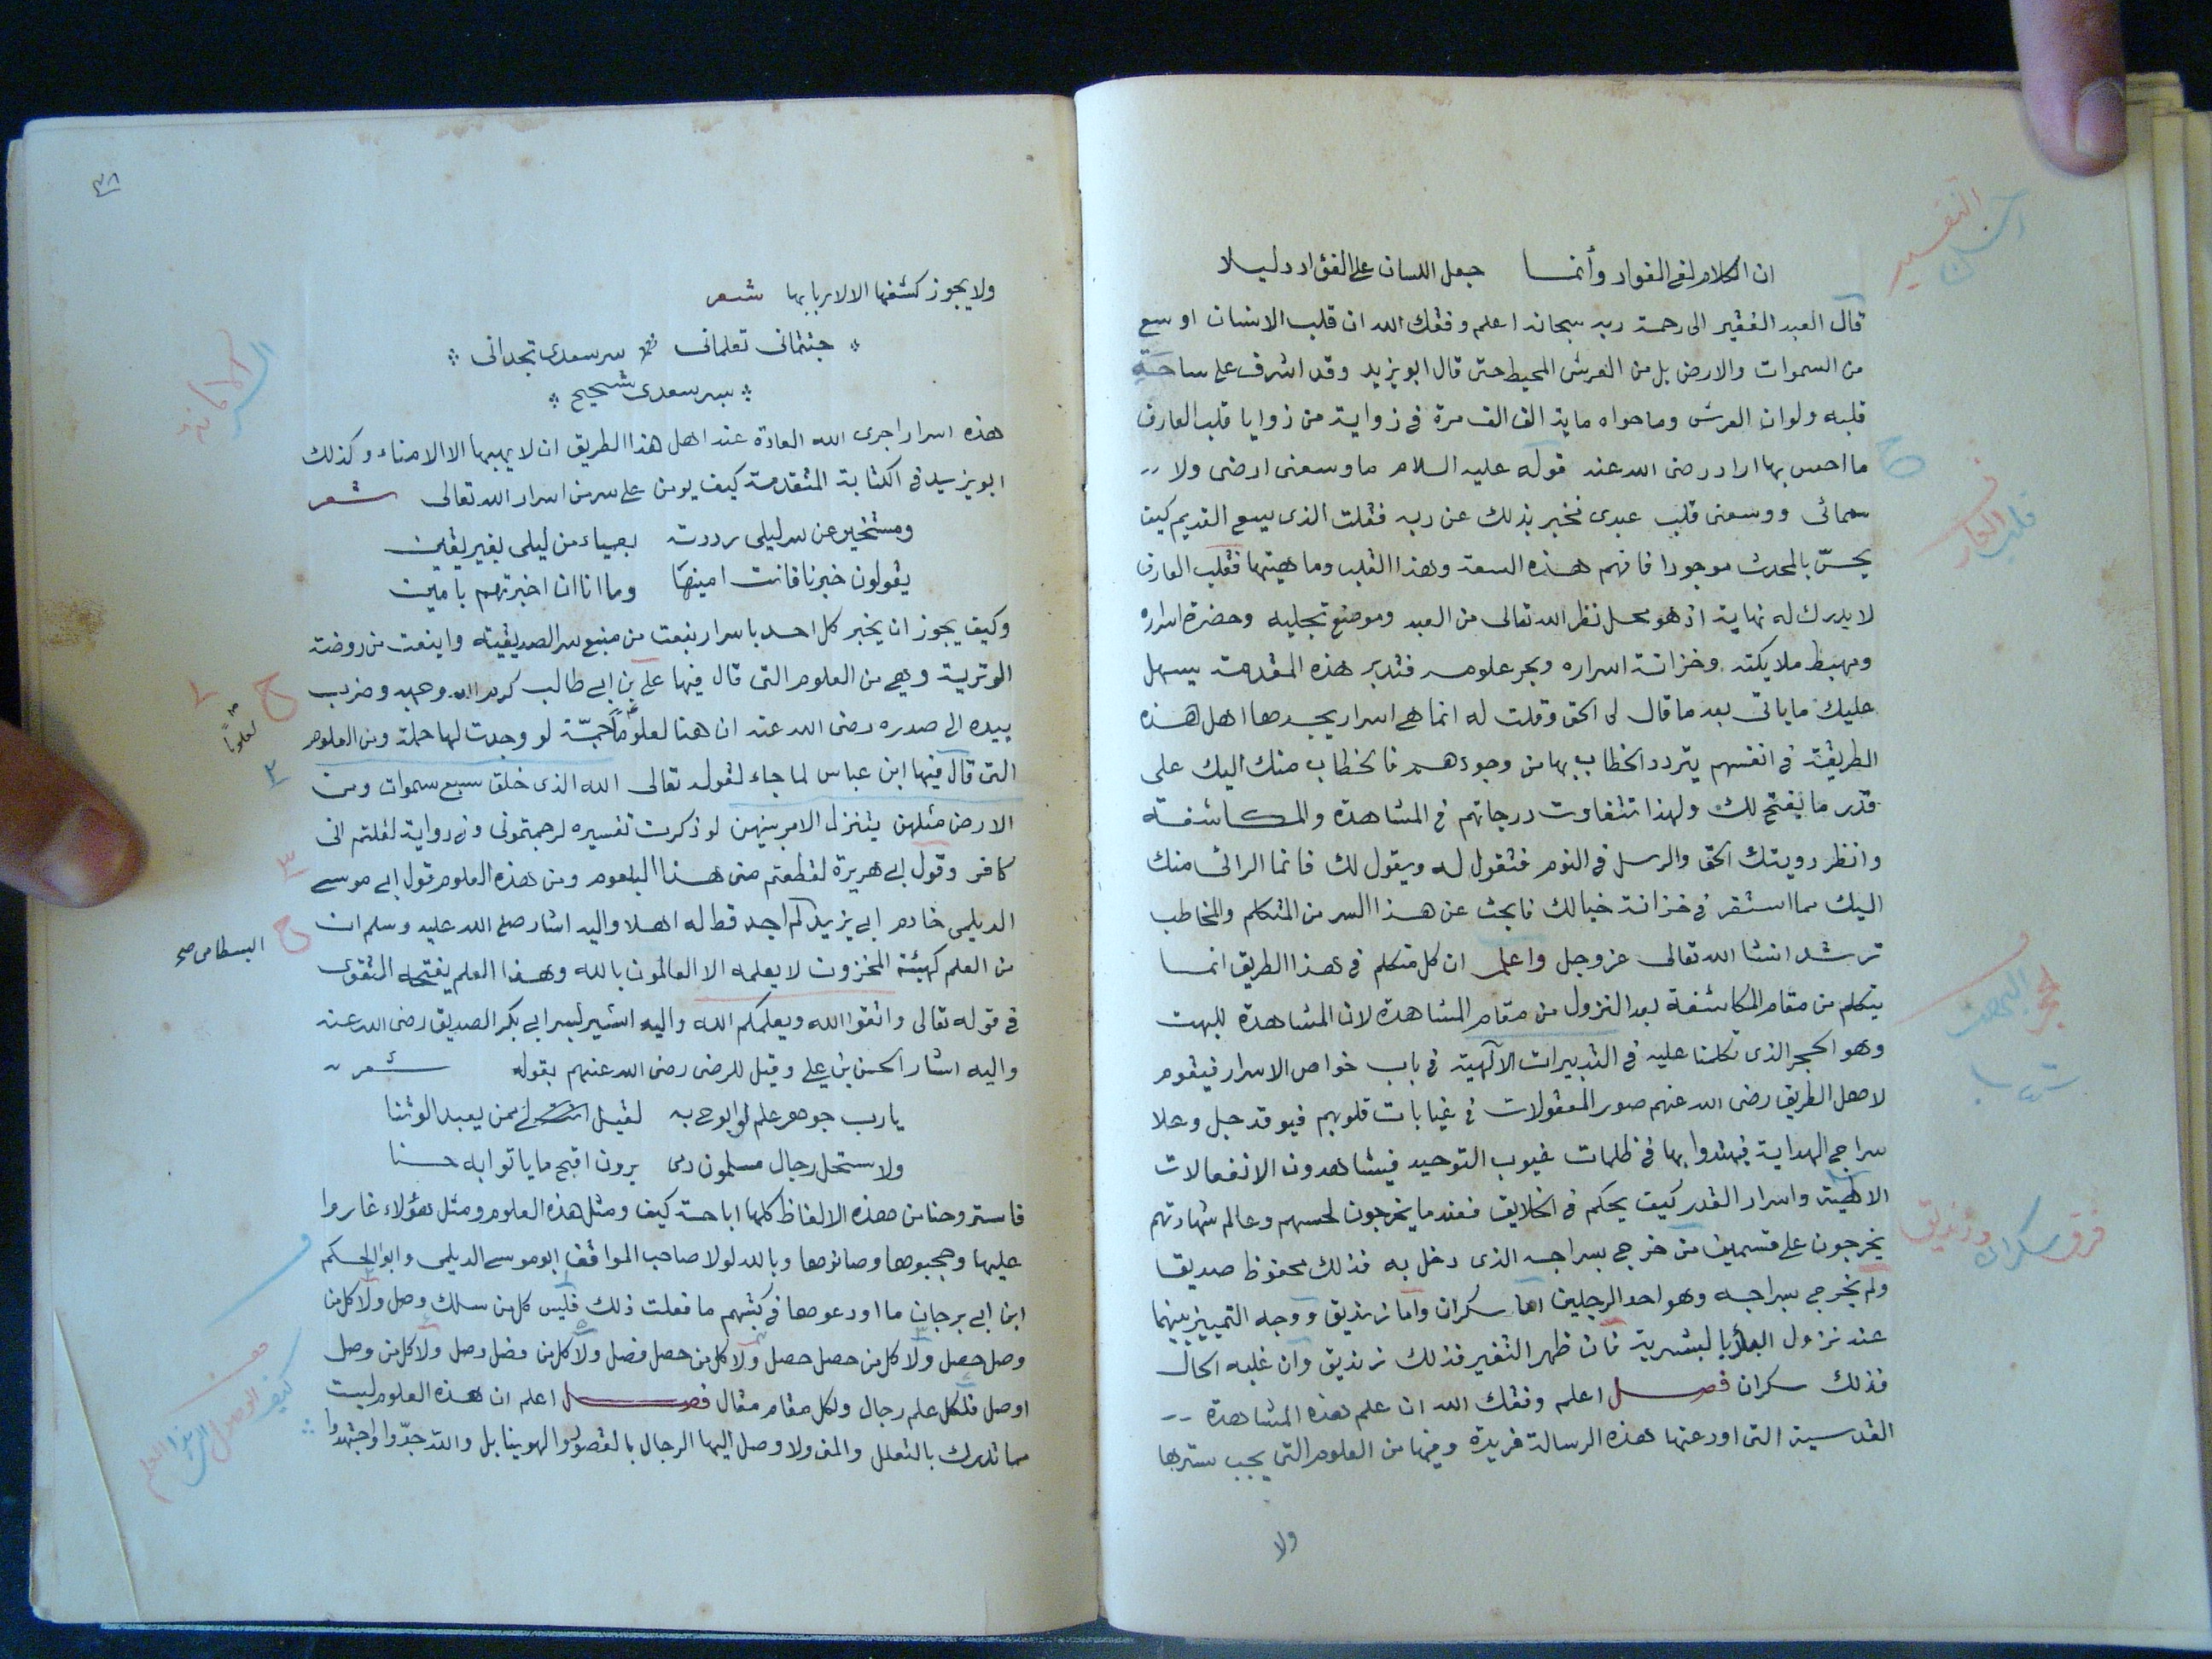 ان الكلام لفى الفواد وأنما جعل اللسان على الفؤاد دليلا
قال العبد الفقير الى رحمة ربه سبحانه اعلم وفقك الله ان قلب الانسان اوسع
من السموات والارض بل من العرش المحيط حتى قال ابو يزيد وقد اشرف على ساحة
قلبه ولوان العرش وما حواه ماية الف الف مرة فى زواية من زوايا قلب العارف
ما احس بها اراد رضى الله عنه قوله عليه السلام ما وسعنى ارضى ولا
سمائى ووسعنى قلب عبدى فخبر بذلك عن ربه فقلت الذى يسع القديم كيف
يحسّ بالمحدث موجودا فافهم هذه السعة وهذا القلب وماهيتها فقلب العارف
لا يدرك له نهاية اذ هو محل نظر الله تعالى من العبد وموضع تجليه وحضرة اسراره
ومهبط ملايكته وخزانة اسراره وبحر علومه فتدبر هذه المقدمة يسهل
عليك ما ياتى بعد ما قال لى الحق وقلت له انما هى اسرار يجدها اهل هذه
الطريقة فى انفسهم يتردد الخطاب بها من وجودهم فالخطاب منك اليك على
قدر ما يفتح لك ولهذا تتفاوت درجاتهم فى المشاهدة والمكاشفة
وانظر رويتك الحق والرسل فى النوم فتقول له ويقول لك فانما الرائى منك
اليك مما استقر فى خزانة خيالك فابحث عن هذا السر من المتكلم والمخاطب
ترشد انشا الله تعالى عز وجل واعلم ان كل متكلم فى هذا الطريق انما
يتكلم من مقام المكاشفة بعد النزول من مقام المشاهدة لان المشاهدة للبهت
وهو الحجر الذى تكلمنا عليه فى التدبيرات الآلهية فى باب خواص الاسرار فيقوم
لاهل الطريق رضى الله عنهم صور المعقولات فى غيابات قلوبهم فيوقد جل وعلا
سراج الهداية فيهتدوا بها فى ظلمات غيوب التوحيد فيشاهدون الانفعالات
الالهية واسرار القدر كيف يحكم فى الخلايق فعندما يخرجون لحسهم وعالم شهادتهم
يخرجون على قسمين من خرج بسراجه الذى دخل به فذلك محفوظ صديقا
ولم يخرج سراجه وهو احد الرجلين اما سكران واما زنديق ووجه التمييز بينهما
عند نزول البلايا البشرية فان ظهر التغير فذلك زنديق وان غلبه الحال
فذلك سكران فصل اعلم وفقك الله ان علم هذه المشاهدة
القدسية التى اودعتها هذه الرسالة فريدة وفيها من العلوم التى يجب سترها
ولا
التفسير
قلب العارف
حجر البهت
فرق سكران وزنديق
٣٨
ولا يجوز كشفها الا لاربابها شعر
جئتمانى تعلمانى سر سعدى تجدانى
بسر سعدى شحيح
هذه اسرار اجرى الله العادة عند اهل هذا الطريق ان لا يهبها الا الامناء وكذلك
ابو يزيد فى الكتابة المتقدمة كيف يومن على سر من اسرار الله تعالى شعر
ومستخبر عن سر ليلى رددته بعمياء من ليلى بغير يقين
يقولون خبرنا فانت امينها وما انا ان اخبرتهم بامين
وكيف يجوز ان يخبر كل احد باسرار نبعت من منبع سر الصديقية واينعت من روضة
الوترية وهى من العلوم التى قال فيها على بن ابى طالب كرم الله وجهه وضرب
بيده الى صدره رضى الله عنه ان هنا لعلوماً جمّة لو وجدت لها حملة ومن العلوم
التى قال فيها ابن عباس لما جاء لقوله تعالى الله الذى خلق سبع سموات ومن
الارض مثلهن يتنزل الامر بينهن لو ذكرت تفسيره لرجمتمونى وفى رواية لقلتم انى
كافر وقول ابى هريرة لقطعتم منى هذا البلعوم ومن هذه العلوم قول ابى موسى
الديلمى خادم ابى يزيد لم اجد قط له اهلا واليه اشار صلى الله عليه وسلم ان
من العلم كهيئة المخزون لا يعلمه الا العالمون بالله وهذا العلم يفتحه التقوى
فى قوله تعالى واتقوا الله ويعلمكم الله واليه اشير بسر ابى بكر الصديق رضى الله عنه
واليه اشار الحسن بن على وقيل للرضى رضى الله عنهم بقوله شعر
يارب جوهر علم لو ابوح به لقيل انت ممن يعبد الوثنا
ولاستحل رجال مسلمون دمى يرون اقبح ما ياتوابه حسنا
فاستروحنا من هذه الالفاظ كلها اباحة كيف ومثل هذه العلوم ومثل هؤلاء غاروا
عليها وحجبوها وصانوها وبالله لولا صاحب المواقف ابو موسى الديلمى وابوا الحكم
ابن ابى برجان ما اودعوها فى كتبهم ما فعلت ذلك فليس كل من سلك وصل ولا كل من
وصل حصل ولا كل من حصل حصل ولا كل من حصل فصل ولا كل من فصل وصل ولا كل من وصل
اوصل فلكل علم رجال ولكل مقام مقال فصل اعلم ان هذه العلوم ليست
مما تدرك بالتعلل والمنى ولا وصل اليها الرجال بالقصور والهوينا بل والله جدّوا واجتهدوا
لعلوماً
البسطامى صح